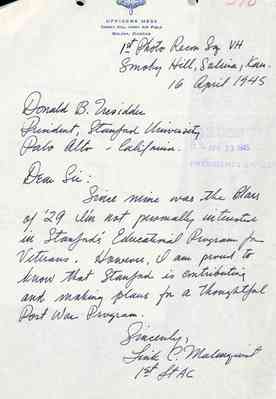 OFFICERS MESS
SMOKY HILL ARMY AIR FIELD
SALINA, KANSAS
1st Photo Recon Sq VH
Smoky Hill, Salina, Kan.
16 April 1945
Donald B. Tresidder
President, Stanford University
Palo Alto - California.
Dear Sir:
Since mine was the Class
of '29 I'm not personally interested
in Stanford's Educational Program for
Veterans. However, I am proud to
know that Stanford is contributing
and making plans for a thoughtful
Post War Program.
Sincerely,
Link C. Malmquist
1st Lt AC